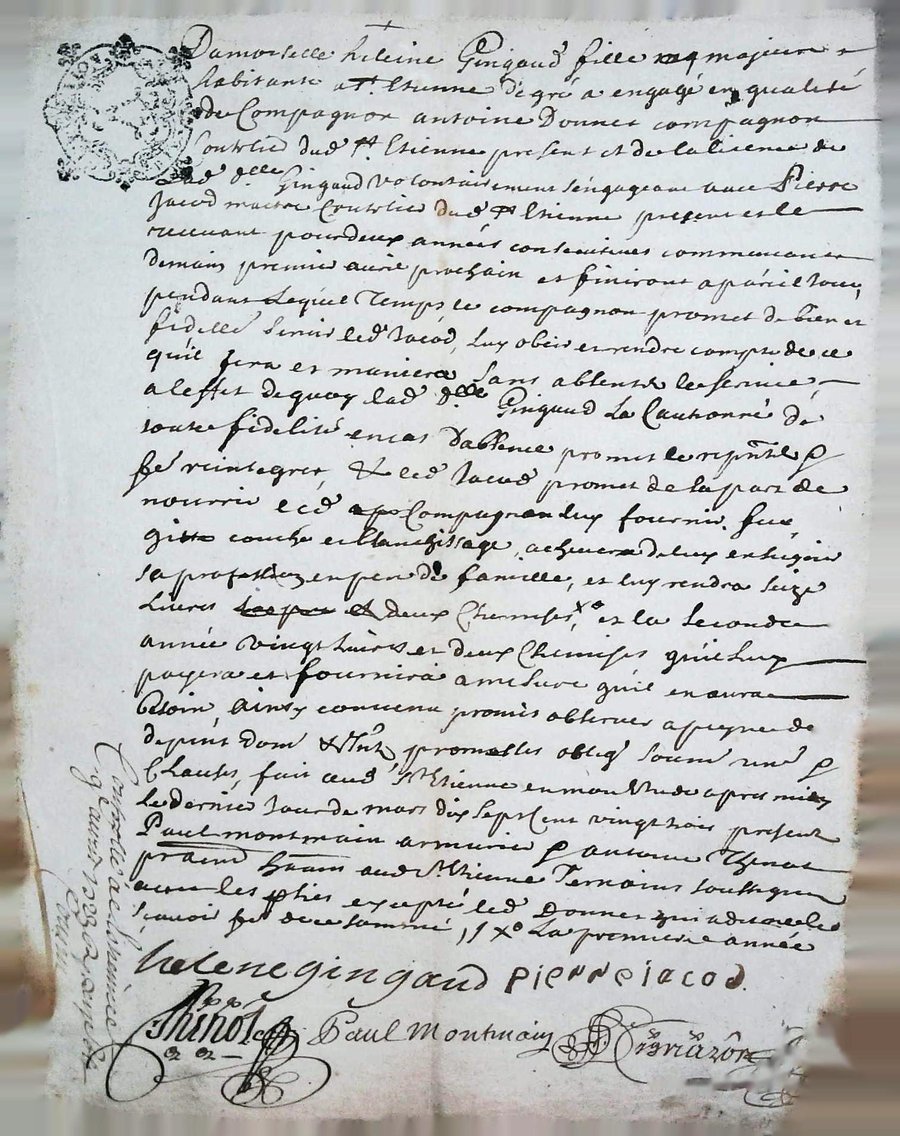 Damoiselle heleine Gingaud fille majeure
habitante a St Etienne de gré a engagé en qualité
de Compagnon antoine Donnet compagnon
Coutelié dud St Etienne present et de la licence de
lad dlle Gingaud volontairement s'engageant avec Pierre
Jacod maitre Coutelié dud St Etienne present et le
recevant pour deux années consecutives commencant
demain premier avril prochain et finiront a pareil jour,
pendant Lequel Temps le compagnon promet de bien et
fidelle servir led Jacod, Luy obeir et rendre compte de ce
qu'il fera et maniera sans absenter le service
a leffet de quoy lad dlle Gingaud La Cautionné de
toute fidelité en cas Dabsence promet le
reintegrer, & led Jacod promet de sa part de
nourrir led Compagnon luy fournir feu,
gitte couche et blanchissage, achever de luy enseigner
sa profession en pere de famille, et luy rendra seize
Livres et deux Chemises, xo et la seconde
année vingt Livres et deux Chemises qu'il luy
payera et fournira a mesure qu'il en aura
besoin, Ainsy convenu promis observer a peyne de
depens dom & Intz promettes oblig soum
Clauses, fait aud St Etienne en mon etude apres midy
Le dernier Jour de mars dix sept cent vingt trois present
Paul montmain armurié & antoine Thinot
aud St Etienne Temoins soussignes
avec les pties excepté led Donnet qui a declaré ne
scavoir fe de ce sommé, // xo La premiere année
helene gingaud pierre iacod.
Thinot Paul Montmain
Controllé a St Etienne
1723